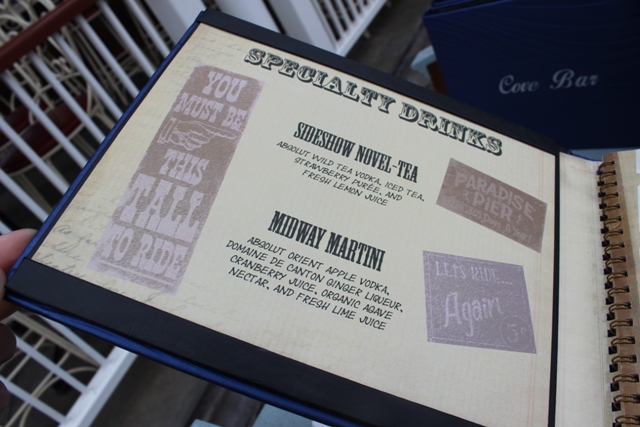 Cove Bar
SPECIALTY DRINKS
YOU
MUST BE
THIS
TALL
TO RIDE
SIDESHOW NOVEL-TEA
ABSOLUT WILD TEA VODKA, ICED TEA,
STRAWBERRY PURÉE, AND
FRESH LEMON JUICE
PARADISE
PIER
MIDWAY MARTINI
ABSOLUT ORIENT APPLE VODKA,
DOMAINE DE CANTON GINGER LIQUEUR,
CRANBERRY JUICE, ORGANIC AGAVE
NECTAR, AND FRESH LIME JUICE
LET'S RIDE...
Again
5¢